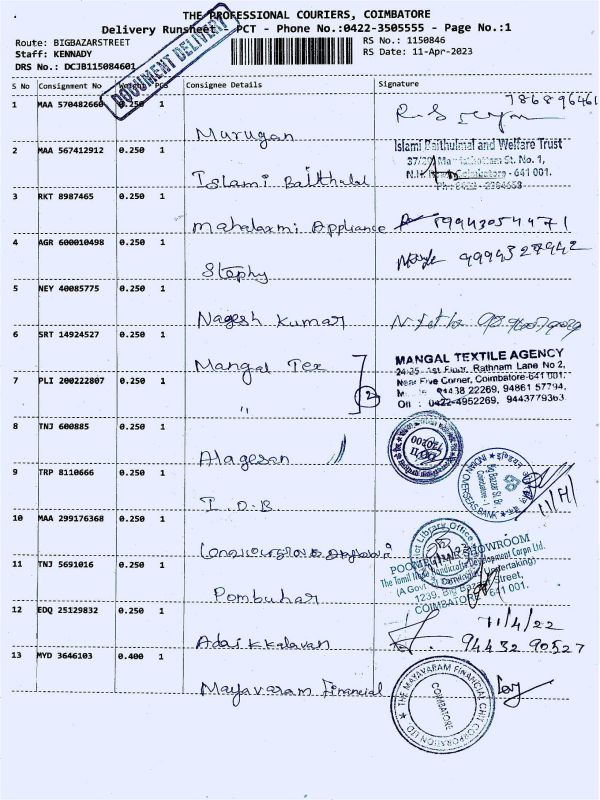 THE PROFESSIONAL COURIERS, COIMBATORE
Delivery Runsheet - PCT - Phone No.:0422-3505555 - Page No.:1
Route: BIGBAZARSTREET
Staff: KENNADY
DRS No.: DCJB115084601
DOCUMENT DELIVERY
RS No.: 1150846
RS Date: 11-Apr-2023
S No Consignment No Weight PCS Consignee Details Signature
1 MAA 570482660 0.250 1 Murugan
2 MAA 567412912 0.250 1 Islami Baithulal
Islami Baithulmal and Welfare Trust
St. No. 1,
Coimbatore - 641 001.
3 RKT 8987465 0.250 1 Mahalaxmi Appliance
4 AGR 600010498 0.250 1 Stephy
5 NEY 40085775 0.250 1 Nagesh Kumar
6 SRT 14924527 0.250 1 Mangal Tex
7 PLI 200222807 0.250 1 "
2
MANGAL TEXTILE AGENCY
1st Floor, Rathnam Lane No 2,
Near Five Corner, Coimbatore-641 001.
94438 22269, 94861 57794,
Off : 0422-4952269, 9443779363
8 TNJ 600885 0.250 1 Alagesan
9 TRP 8110666 0.250 1 I.O.B
INDIAN OVERSEAS BANK
Big Bazaar St. Br
Coimbatore - 1
10 MAA 299176368 0.250 1
District Library Office
11 TNJ 5691016 0.250 1 Pombuhar
POOMPUHAR SHOWROOM
The Tamil Nadu Handicrafts Development Corpn Ltd.
(A Govt of Tamilnadu Undertaking)
1239, Big Bazaar Street,
COIMBATORE - 641 001.
12 EDQ 25129832 0.250 1 Adaikkalavan
11/4/22
94432 90527
13 MYD 3646103 0.400 1 Mayavaram Financial
THE MAYAVARAM FINANCIAL CHIT CORPORATION LTD.
COIMBATORE